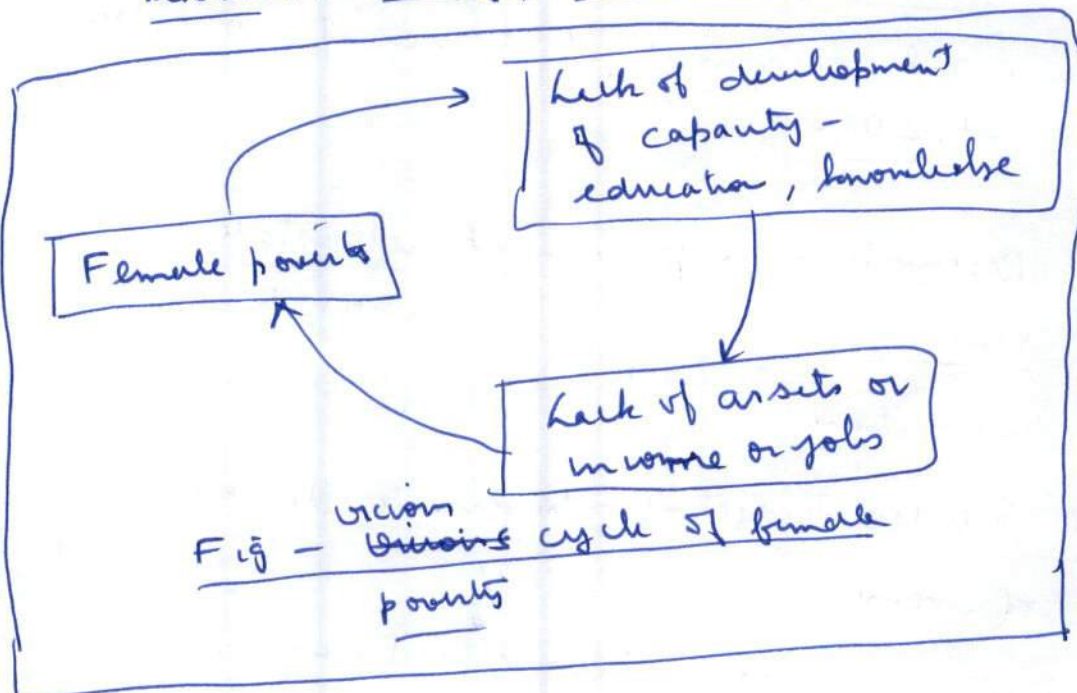 Lack of development
of capacity -
education, knowledge
Female poverty
Lack of assets or
income or jobs
vicious
Fig - cycle of female
poverty